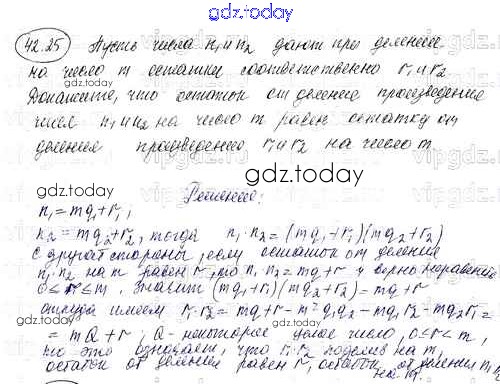 gdz.today
42.25 Пусть числа n₁ и n₂ дают при делении
на число m остатки соответственно r₁ и r₂
Докажите, что остаток от деления произведения
чисел n₁ и n₂ на число m равен остатку от
деления произведению r₁ и r₂ на число m
gdz.today
Решение:
n₁=mq₁+r₁;
n₂=mq₂+r₂, тогда n₁·n₂=(mq₁+r₁)(mq₂+r₂)
С другой стороны, если остаток от деления
n₁·n₂ на m равен r, то n₁·n₂=mq+r и верно неравение
0≤r≤m. Значит (mq₁+r₁)(mq₂+r₂)-mq+r
откуда имеем r₁·r₂=mq+r-m²q₁q₂-mq₁r₂-mq₂r₁=
=mQ+r; Q-некоторое целое число, 0≤r<m,
но это означает, что r₁·r₂ поделив на m,
остаток от деления равен r, остаток от деления n₁n₂
на m.
gdz.today